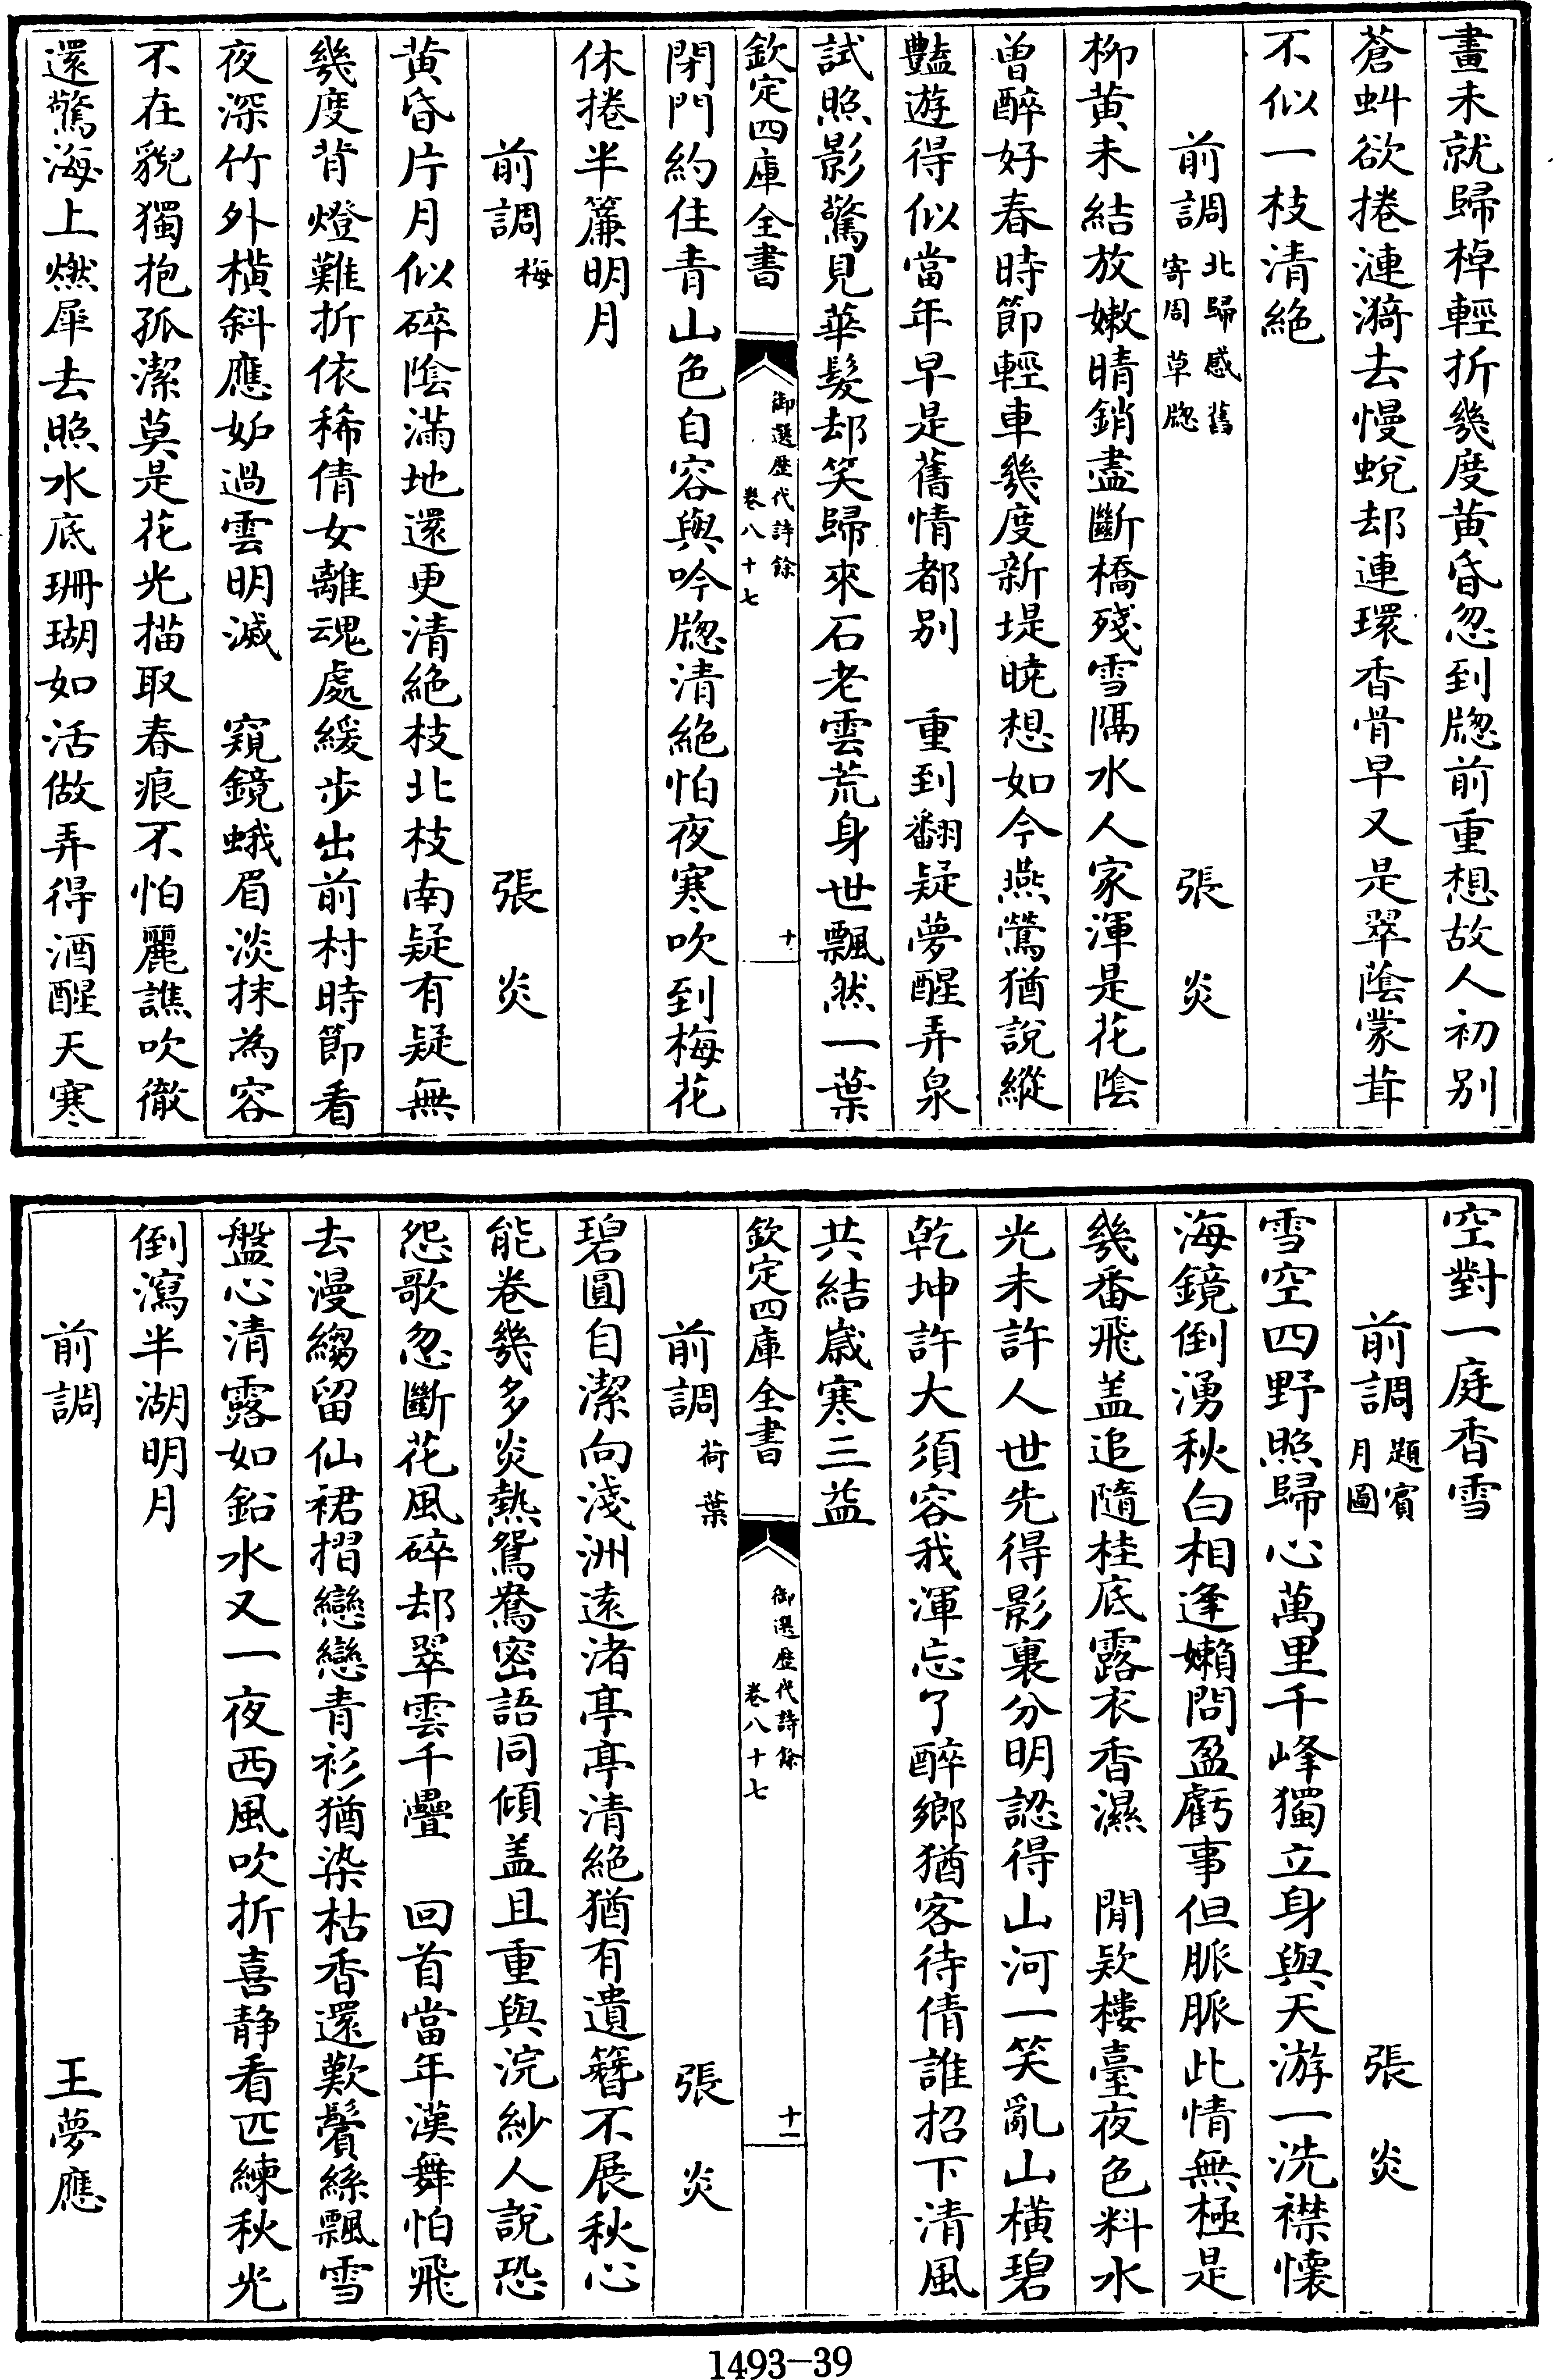 畫未就歸棹輕折幾度黄昏忽到牕前重想故人初别
蒼虯欲捲漣漪去慢蛻却連環香骨早又是翠蔭蒙茸
不似一枝清絶
前調北歸感舊寄周草牕　張炎
柳黄未結放嫩晴銷盡斷橋殘雪隔水人家渾是花陰
曾醉好春時節輕車幾度新堤曉想如今燕鶯猶說縱
豔遊得似當年早是舊情都别　重到翻疑夢醒弄泉
試照影驚見華髮却笑歸來石老雲荒身世飄然一葉
欽定四庫全書　御選歴代詩餘卷八十七　十
閉門約住青山色自容與吟牕清絶怕夜寒吹到梅花
休捲半簾明月
前調梅　張炎
黄昏片月似碎陰滿地還更清絶枝北枝南疑有疑無
幾度背燈難折依稀倩女離魂處緩步出前村時節看
夜深竹外橫斜應妒過雲明滅　窺鏡蛾眉淡抹為容
不在貌獨抱孤潔莫是花光描取春痕不怕麗譙吹徹
還驚海上燃犀去照水底珊瑚如活做弄得酒醒天寒
空對一庭香雪
前調題賓月圖　張炎
雪空四野照歸心萬里千峰獨立身與天游一洗襟懷
海鏡倒湧秋白相逢嬾問盈虧事但脈脈此情無極是
幾番飛盖追隨桂底露衣香濕　閒欵樓臺夜色料水
光未許人世先得影裏分明認得山河一笑亂山橫碧
乾坤許大須容我渾忘了醉鄉猶客待倩誰招下清風
共結歲寒三益
欽定四庫全書　御選歴代詩餘卷八十七　十一
前調荷葉　張炎
碧圓自潔向淺洲遠渚亭亭清絶猶有遺簪不展秋心
能卷幾多炎熱鴛鴦密語同傾盖且重與浣紗人說恐
怨歌忽斷花風碎却翠雲千疊　回首當年漢舞怕飛
去漫縐留仙裙摺戀戀青衫猶染枯香還歎鬢絲飄雪
盤心清露如鉛水又一夜西風吹折喜静看匹練秋光
倒瀉半湖明月
前調　王夢應
1493—39